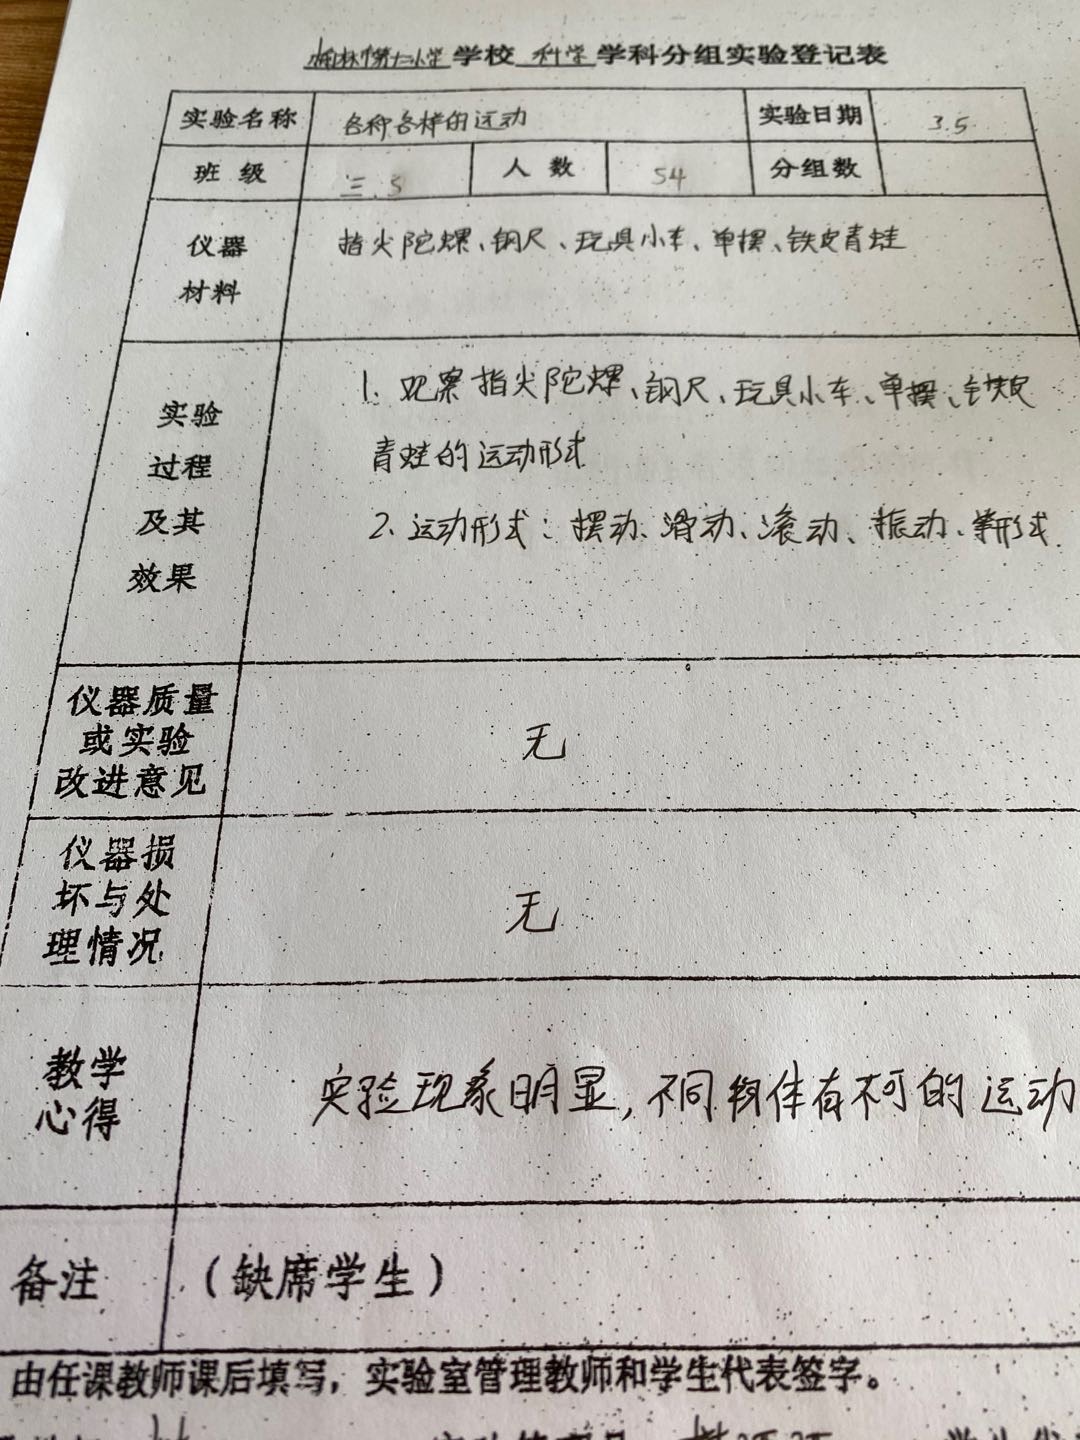 学校 科学 学科分组实验登记表
实验名称 各种各样的运动 实验日期 3.5
班级 三.5 人数 54 分组数
仪器 指尖陀螺、钢尺、玩具小车、单摆、铁皮青蛙
材料
1. 观察指尖陀螺、钢尺、玩具小车、单摆、铁皮
实验
过程 青蛙的运动形式
及其 2. 运动形式：摆动、滑动、滚动、振动、等形式.
效果
仪器质量
或实验 无
改进意见
仪器损
坏与处 无
理情况
教学 实验现象明显,不同物体有不可的运动
心得
备注 （缺席学生）
由任课教师课后填写，实验室管理教师和学生代表签字。